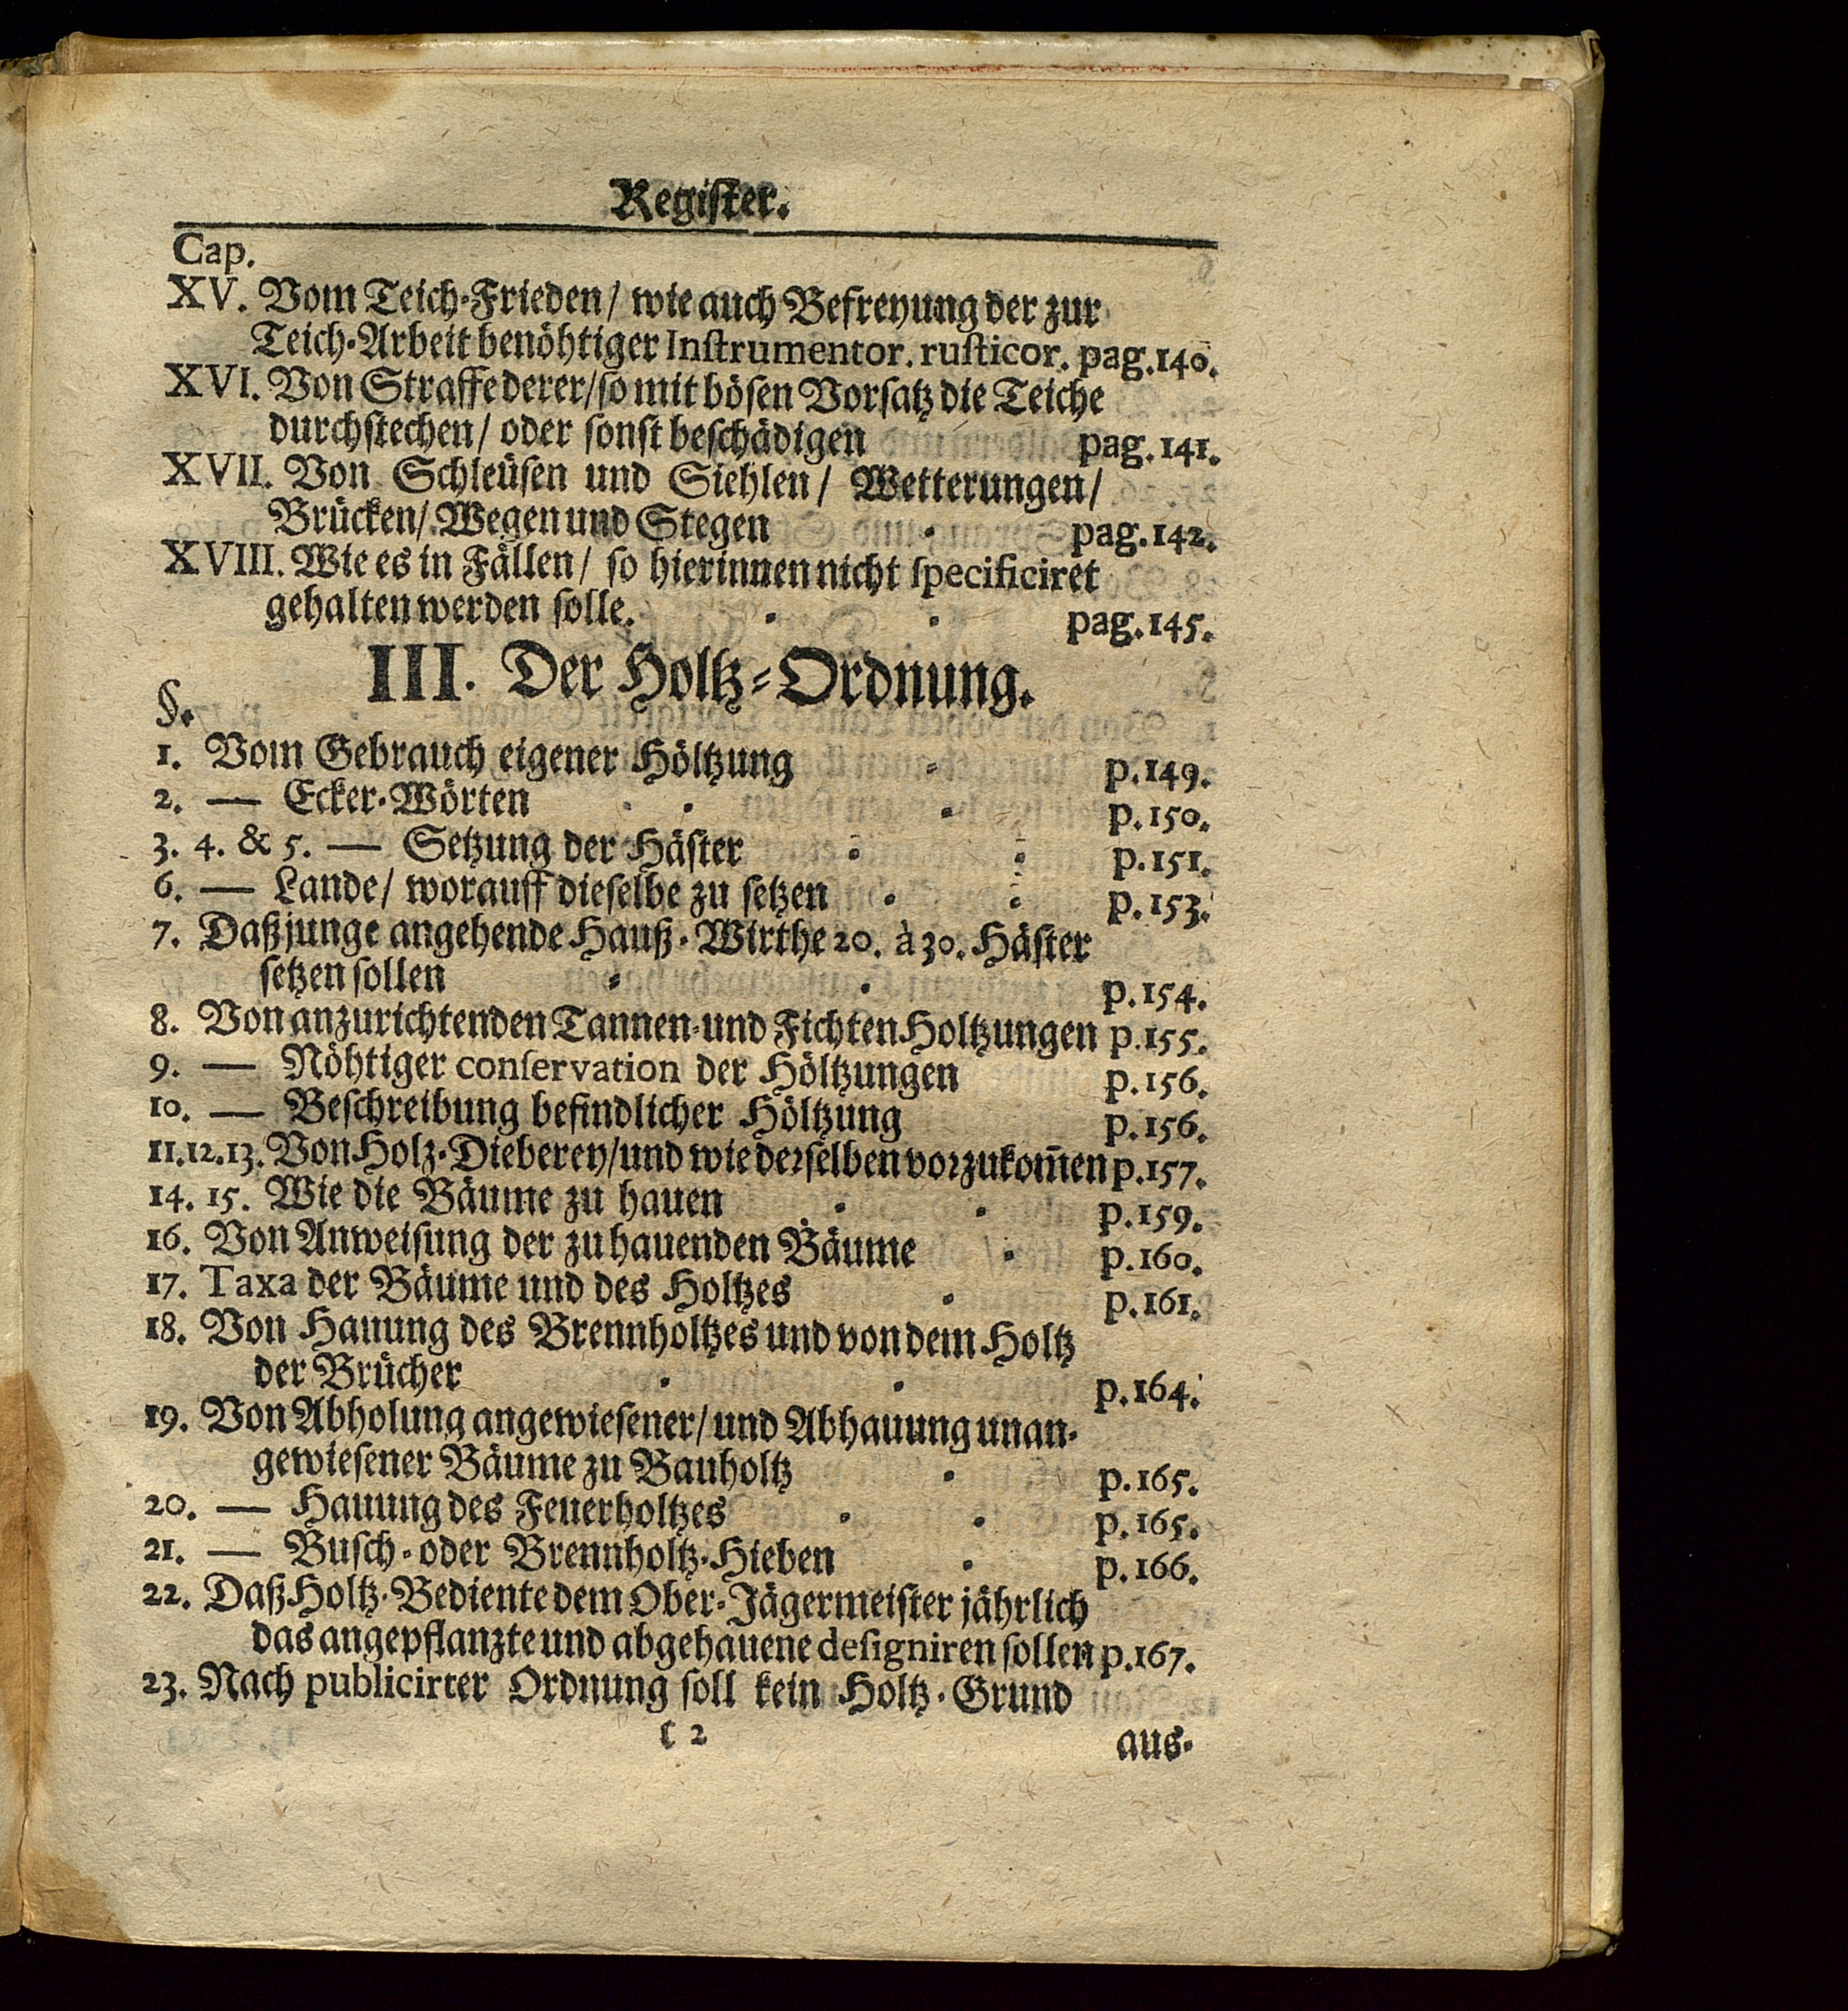 Register.
Cap.
XV. Vom Teich-Frieden/ wie auch Befreyung der zur
Teich-Arbeit benöhtiger Inſtrumentor. ruſticor. pag.140.
XVI. Von Straffe derer/ ſo mit böſen Vorſatz die Teiche
durchſtechen/ oder ſonſt beſchädigen pag.141.
XVII. Von Schleüſen und Siehlen/ Wetterungen/
Brücken/ Wegen und Stegen pag.142.
XVIII. Wie es in Fällen/ ſo hierinnen nicht ſpecificiret
gehalten werden ſolle. pag.145.
III. Der Holtz-Ordnung.
§.
1. Vom Gebrauch eigener Höltzung p.149.
2. — Ecker-Wörten p.150.
3. 4. & 5. — Setzung der Häſter p.151.
6. — Lande/ worauff dieſelbe zu ſetzen p.153.
7. Daß junge angehende Hauß-Wirthe 20. à 30. Häſter
ſetzen ſollen p.154.
8. Von anzurichtenden Tannen-und Fichten Holtzungen p.155.
9. — Nöhtiger conſervation der Höltzungen p.156.
10. — Beſchreibung befindlicher Höltzung p.156.
11.12.13. Von Holz-Dieberey/ und wie derſelben vorzukom̃en p.157.
14. 15. Wie die Bäume zu hauen p.159.
16. Von Anweiſung der zu hauenden Bäume p.160.
17. Taxa der Bäume und des Holtzes p.161.
18. Von Hauung des Brennholtzes und von dem Holtz
der Brücher p.164.
19. Von Abholung angewieſener/ und Abhauung unan-
gewieſener Bäume zu Bauholtz p.165.
20. — Hauung des Feuerholtzes p.165.
21. — Buſch-oder Brennholtz-Hieben p.166.
22. Daß Holtz-Bediente dem Ober-Jägermeiſter jährlich
das angepflanzte und abgehauene deſigniren ſollen p.167.
23. Nach publicirter Ordnung ſoll kein Holtz-Grund
c 2 aus-